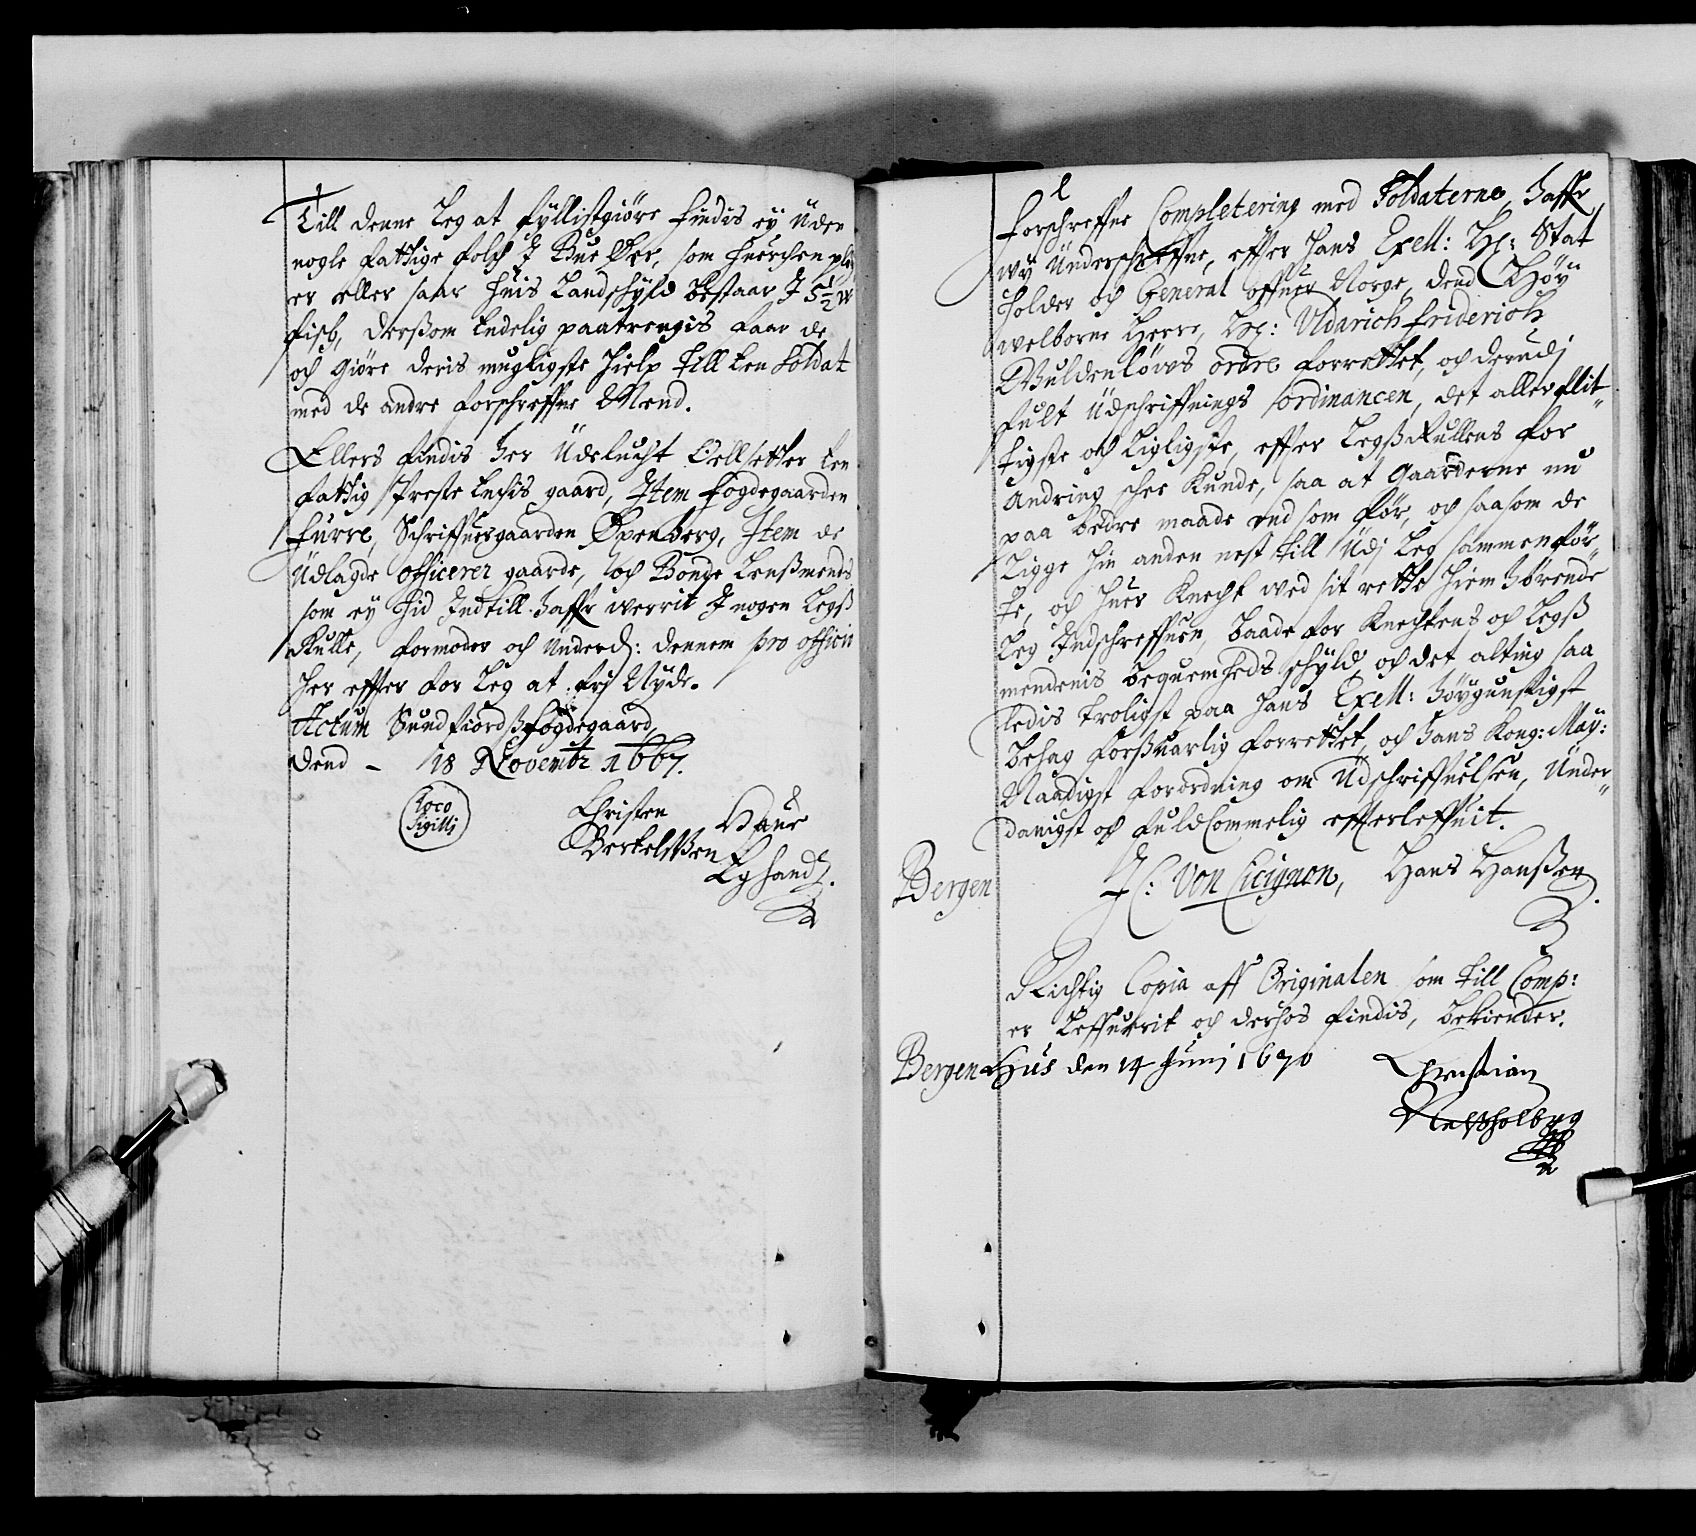 Till denne Leg at fyllistgiøre findis ey uden
nogle fattige folch J Bue Øer, som huerchen pløy
er eller saar huis Landschyld bestaar J 5½ W
fisch, dersom Endelig paatrengis faar de
och giøre deris mugligste hielp till Een Soldat
med de andre forschreffne Mend.
Ellers findis her Üdelucht Ellsetter Een
fattig Preste Enchis gaard, Item fogdegaarden
furre, Schriffuergaarden Øpenberg, Item de
Üdlagde Officerer gaarde, och Bonde Lenßmends
som ey hid Indtill haffr werrit J nogen Legß
Rulle, formoder och Underd: dennem pro officii
her effter for Leg at fri Nyde.
Actum Sundfiordß fogdegaard,
Dend - 18 Novembr 1667.
Loco
Sigilli
Christen
Berkelßen
Eghand.
forschreffne Completering med Soldaterne haffr
wy Underschreffne, effter hans Exell: Hr: Stat
holder och General offuer Norge, dend Høy
welborne Herre, Hr: Uldarich friderich
Guldenløws ordre forrettet, och derudj
fult Udschriffnings ordinancen, det aller flit
tigste och Ligligste, effter Legß Rullens for
Andring schee Kunde, saa at Gaarderne nu
paa bedre maade end som før, och saasom de
Ligge hin anden nest till Udj Leg sammenfør
te, och huer Knecht wed sit rette hiem hørende
Leg Indschreffuen, baade for Knechtens och Legß
mendenis bequemheds schyld, och det alting saa
ledis troligst paa hans Exell: høygunstigst
behag forsuarlig forrettet, och hans Kong: May:
Naadigst forordning om Udschriffuelsen, Under
danigst och fuldkommelig effterleffuit.
Bergen
JC: Von Cicignon, Hans Hanßen
Richtig Copia aff Originalen som till Comp:
er Leffuerit och derhos findis, bekiender.
Bergen Hus den 14 Junj 1670
Christian